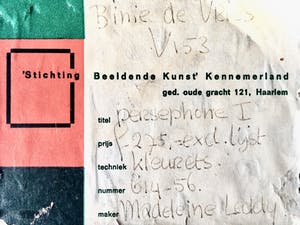 Blinie de Vries
V153
'Stichting Beeldende Kunst' Kennemerland
ged. oude gracht 121, Haarlem
titel persephone I
prijs f 275,- excl. lijst
techniek kleurets.
nummer 614-56.
maker Madeleine Liddy.